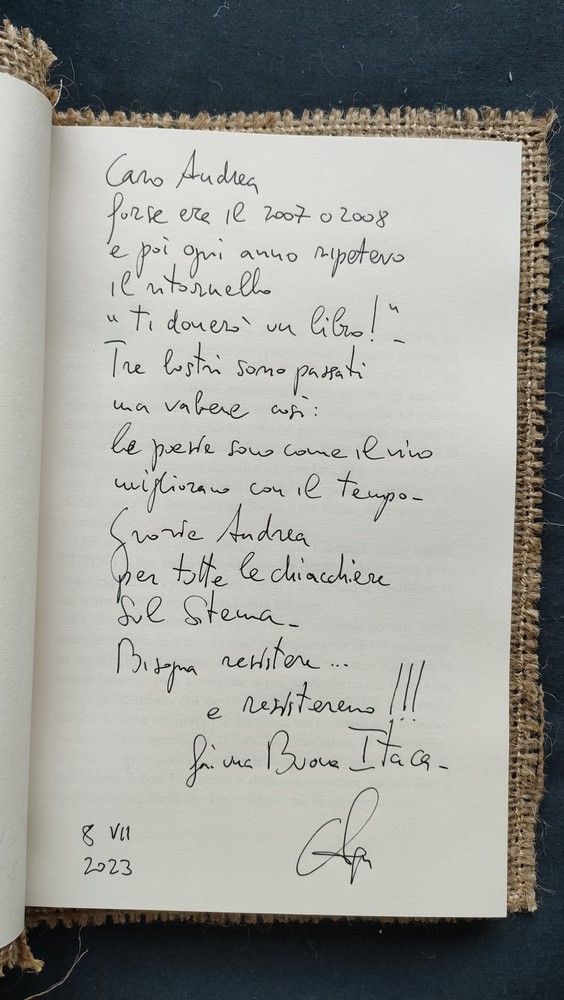 Caro Andrea
forse era il 2007 o 2008
e poi ogni anno ripetevo
il ritornello
"ti donerò un libro!"-
Tre lustri sono passati
ma va bene così:
le poesie sono come il vino
migliorano con il tempo-
Grazie Andrea
per tutte le chiacchiere
sul
Bisogna resistere...
e resisteremo!!!
Buona Itaca-
8 VII
2023